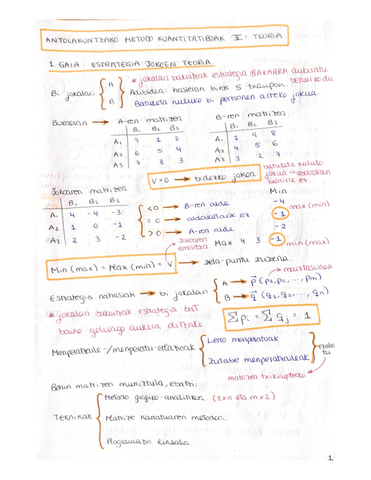 ANTOLAKUNTZAKO METODO KUANTITATIBOAK II: TEORIA
1. GAIA: ESTRATEGIA JOKOEN TEORIA
Bi jokalari A B
* jokalari bakoitzak estrategia BAKARRA aukeratu beharko du
Adibidea: hasieran biek 5 txanpon.
Batuketa nuluko bi pertsonen arteko jokua.
Bukaeran → A-ren matrizea
B1 B2 B3
A1 9 1 2
A2 6 5 4
A3 7 8 3
B-ren matrizea
B1 B2 B3
A1 1 9 8
A2 4 5 6
A3 3 2 7
Jokoaren matrizea
B1 B2 B3
A1 4 -4 -3
A2 1 0 -1
A3 2 3 -2
V=0 → bidezko jokoa
batuketa nuluko jokoa
< 0 → B-ren alde
= 0 → aldaketarik ez
> 0 → A-ren alde
Min
-4
-1 max(min)
-2
Max 4 3 -1 min(max)
Jokoaren emaitza
Min(max) = Max(min) = V → zela-puntu zuzena.
Estrategia nahasiak → bi jokalari
A → p (p1, p2, ..., pm)
B → q (q1, q2, ..., qn)
* jokalari bakoitzak estrategia bat baino gehiago aukera ditzake.
Σpi = Σqj = 1
Menperatzaile-/menperatu-erlazioak
Lerro menperatuak
Zutabe menperatzaileak
ezabatu
matrizea txikiagotzeko
Behin matrizea murriztuta, ebatzi:
Teknikak
Metodo grafiko-analitikoa. (2xn eta mx2)
Matrize karratuaren metodoa.
Programazio lineala
1